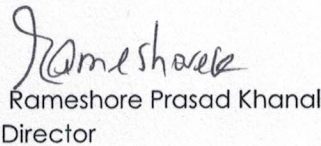 Rameshore
Rameshore Prasad Khanal
Director